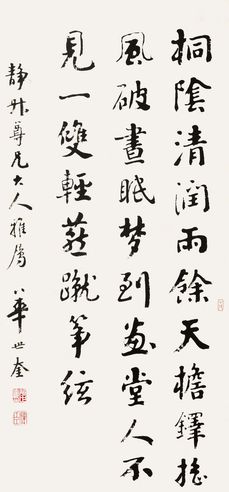 桐陰清潤雨餘天檐鐸摇
風破晝眠梦到畫堂人不
見一雙輕燕蹴筝弦
静叔尊兄大人雅屬
华世奎